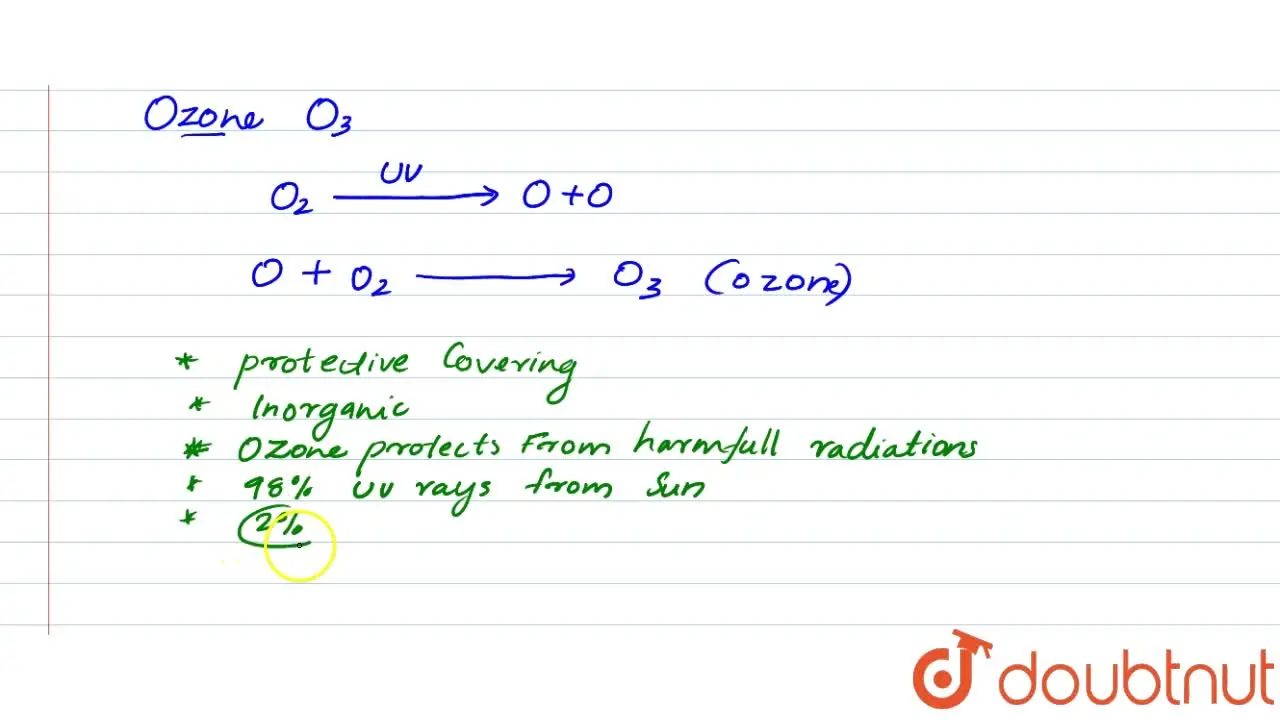 Ozone O₃
UV
O₂ ⟶ O + O
O + O₂ ⟶ O₃ (ozone)
* protective Covering
* Inorganic
* Ozone protects From harmfull radiations
* 98% UV rays from Sun
* 2%
doubtnut